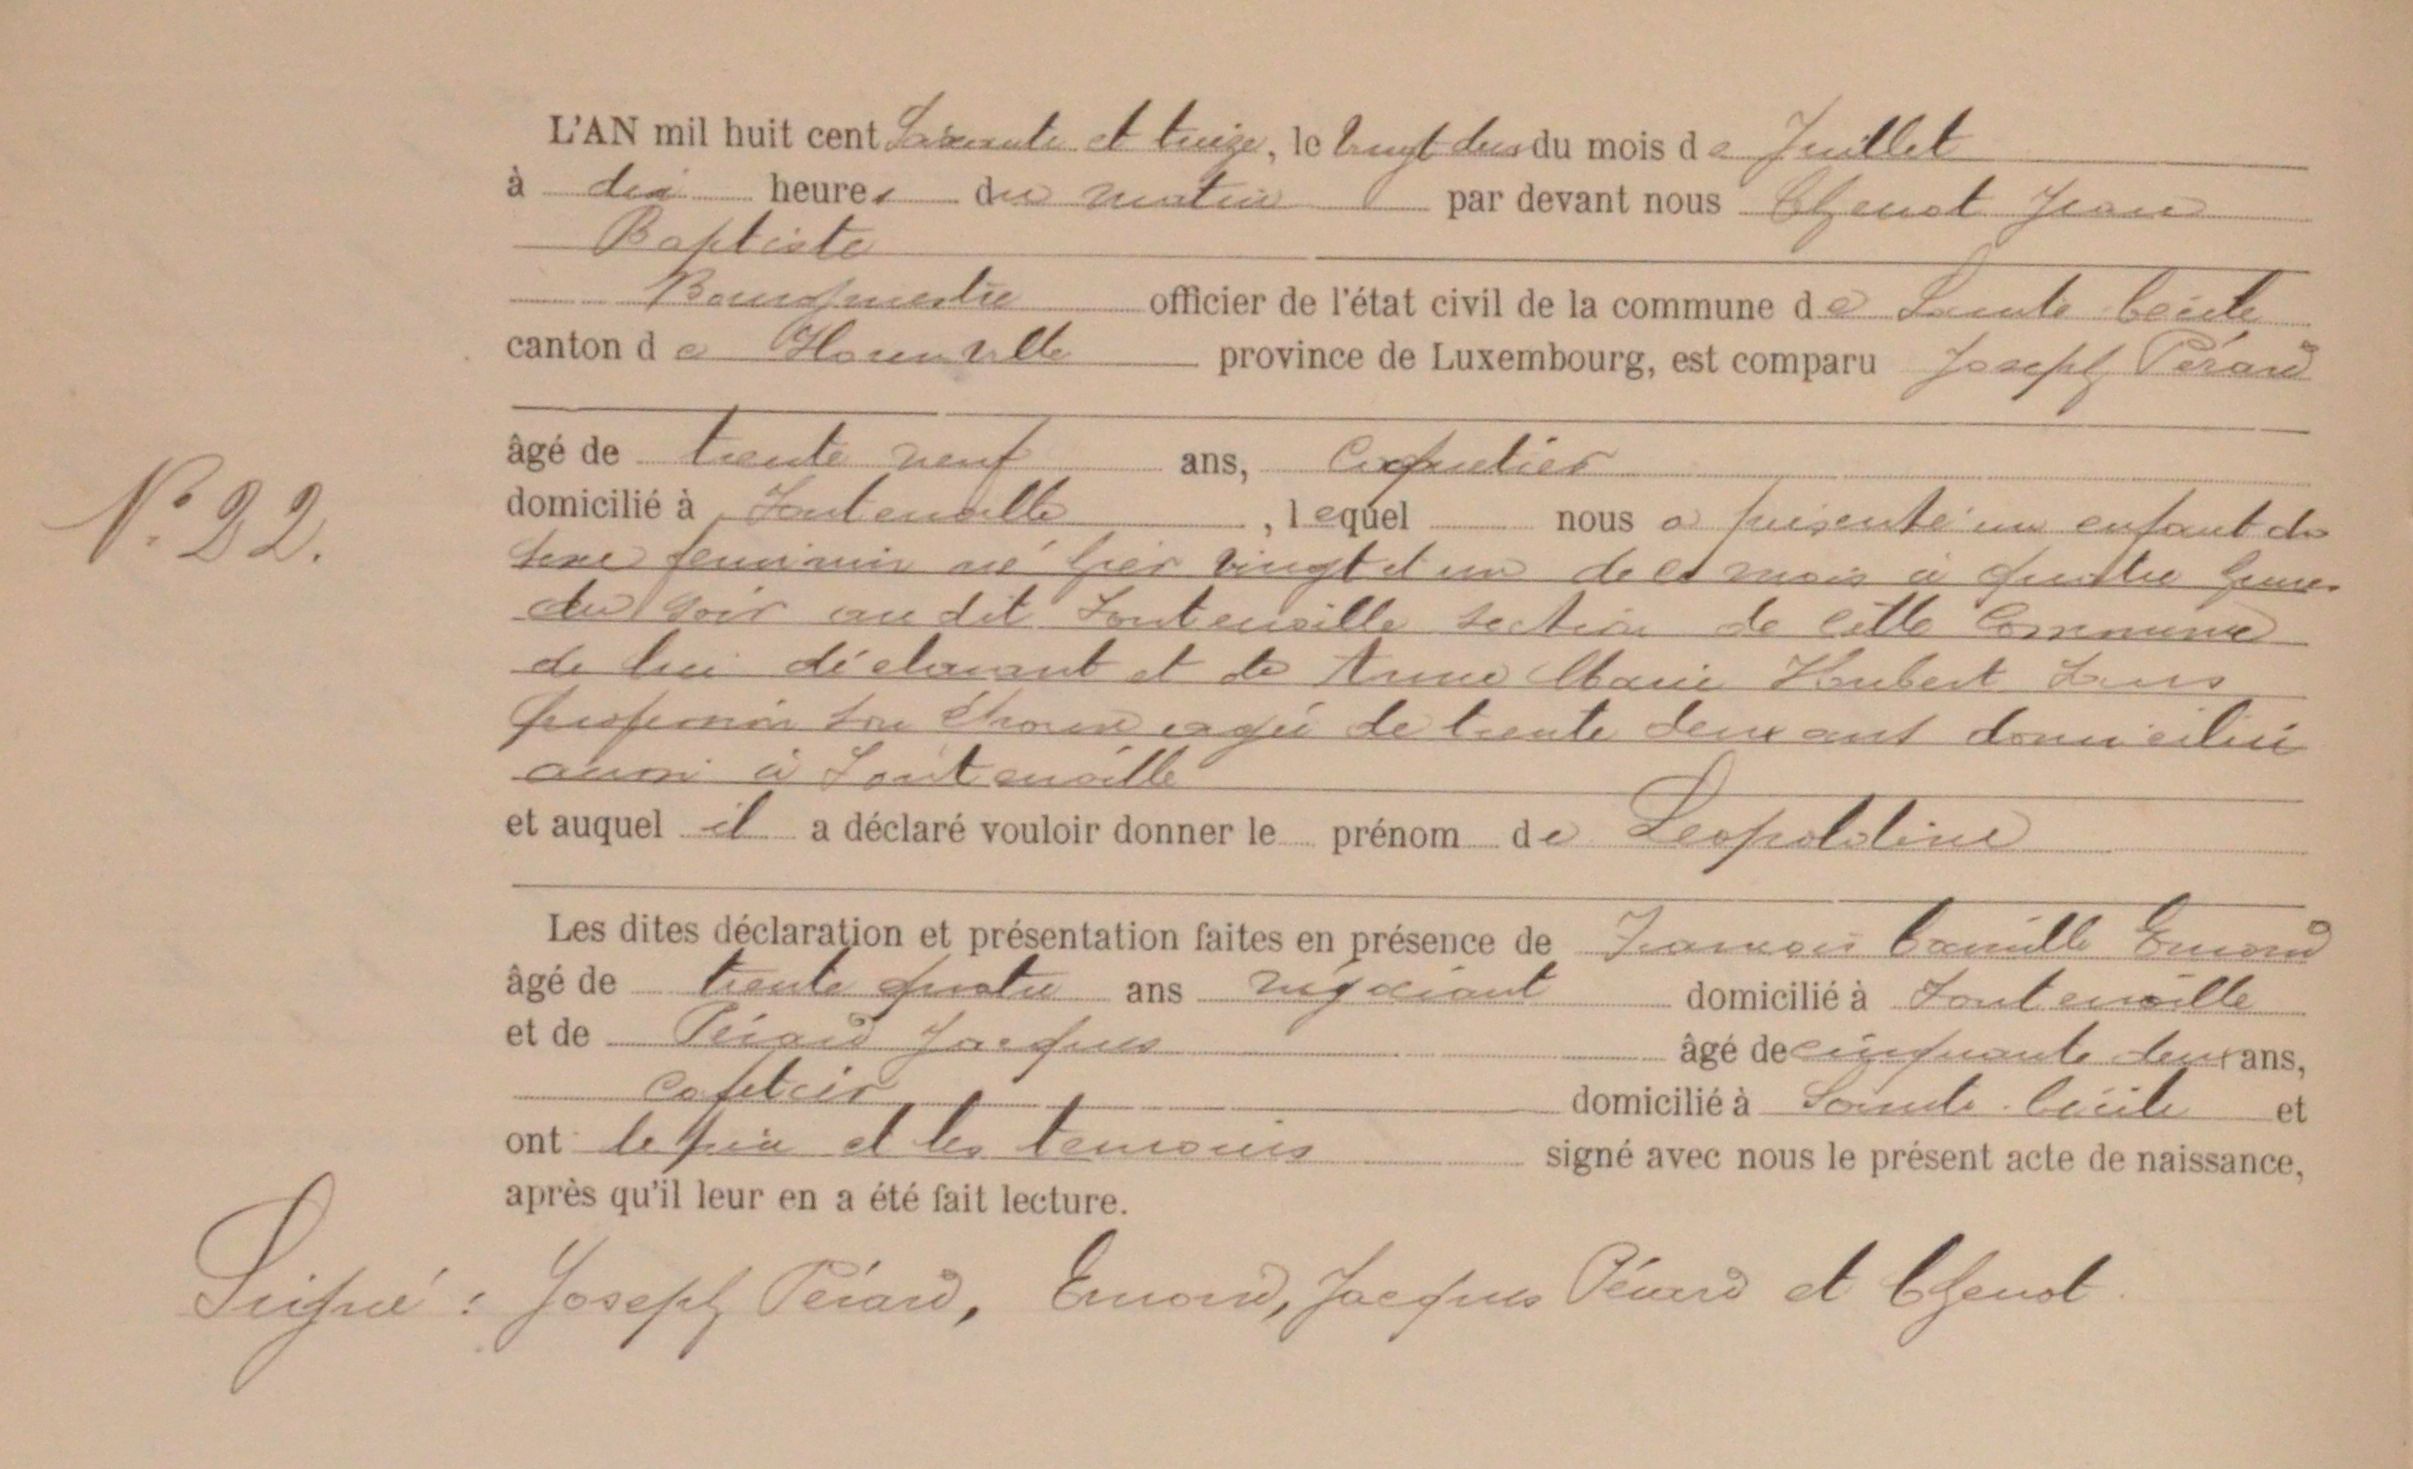 L'AN mil huit cent Soixante et treize, le vingt deux du mois de Juillet
à dix heures du matin par devant nous Chenot Jean
Baptiste
Bourgmestre officier de l'état civil de la commune de Sainte Cécile
canton de Florenville province de Luxembourg, est comparu Joseph Pérard
âgé de trente neuf ans, Coquetier
N° 22.
domicilié à Fontenoille, lequel nous a présenté un enfant du
sexe feminin né hier vingt et un de ce mois à quatre heures
du soir au dit Fontenoille section de cette Commune
de lui déclarant et de Anne Marie Hubert sans
profession son épouse agée de trente deux ans domiciliée
aussi à Fontenoille
et auquel il a déclaré vouloir donner le prénom de Leopoldine
Les dites déclaration et présentation faites en présence de François Camille Emond
âgé de trente quatre ans négociant domicilié à Fontenoille
et de Pérard Jacques âgé de cinquante deux ans,
domicilié à Sainte Cécile et
ont le père et les temoins signé avec nous le présent acte de naissance,
après qu'il leur en a été fait lecture.
Signé : Joseph Pérard, Emond, Jacques Pérard et Chenot.